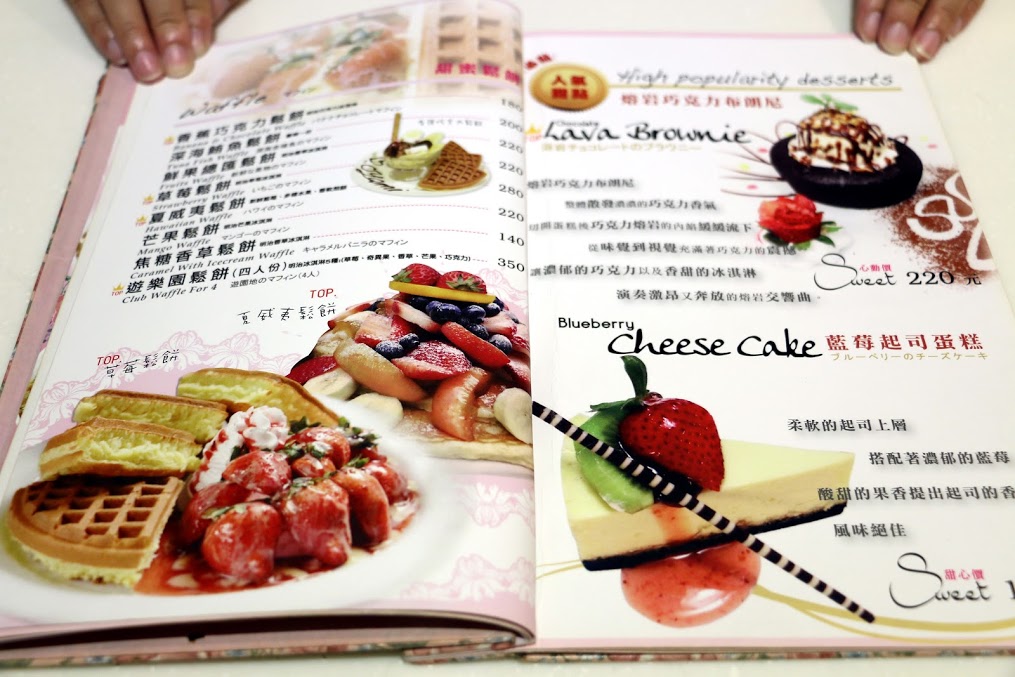 甜蜜鬆餅
Waffle
香蕉巧克力鬆餅 180
Banana & Chocolate Waffle
深海鮪魚鬆餅 200
Tuna Fish Waffle
鮮果總匯鬆餅 明治香草冰淇淋 220
Fruits Waffle
草莓鬆餅 220
Strawberry Waffle いちごのマフィン
夏威夷鬆餅 280
Hawaiian Waffle ハワイのマフィン
芒果鬆餅 明治芒果冰淇淋 220
Mango Waffle マンゴーのマフィン
焦糖香草鬆餅 明治香草冰淇淋 140
Caramel With Icecream Waffle キャラメルバニラのマフィン
遊樂園鬆餅(四人份) 明治冰淇淋5種(草莓、奇異果、香草、芒果、巧克力) 350
Club Waffle For 4 遊園地のマフィン(4人)
TOP.
夏威夷鬆餅
TOP.
草莓鬆餅
人氣
甜點
High popularity desserts
熔岩巧克力布朗尼
Chocolate
Lava Brownie
熔岩チョコレートのブラウニー
熔岩巧克力布朗尼
整體散發濃濃的巧克力香氣
切開蛋糕後巧克力熔岩的內餡緩緩流下
從味覺到視覺充滿著巧克力的震撼
讓濃郁的巧克力以及香甜的冰淇淋
演奏激昂又奔放的熔岩交響曲。
心動價
Sweet 220 元
Blueberry
Cheese Cake 藍莓起司蛋糕
ブルーベリーのチーズケーキ
柔軟的起司上層
搭配著濃郁的藍莓
酸甜的果香提出起司的香
風味絕佳
甜心價
Sweet 1